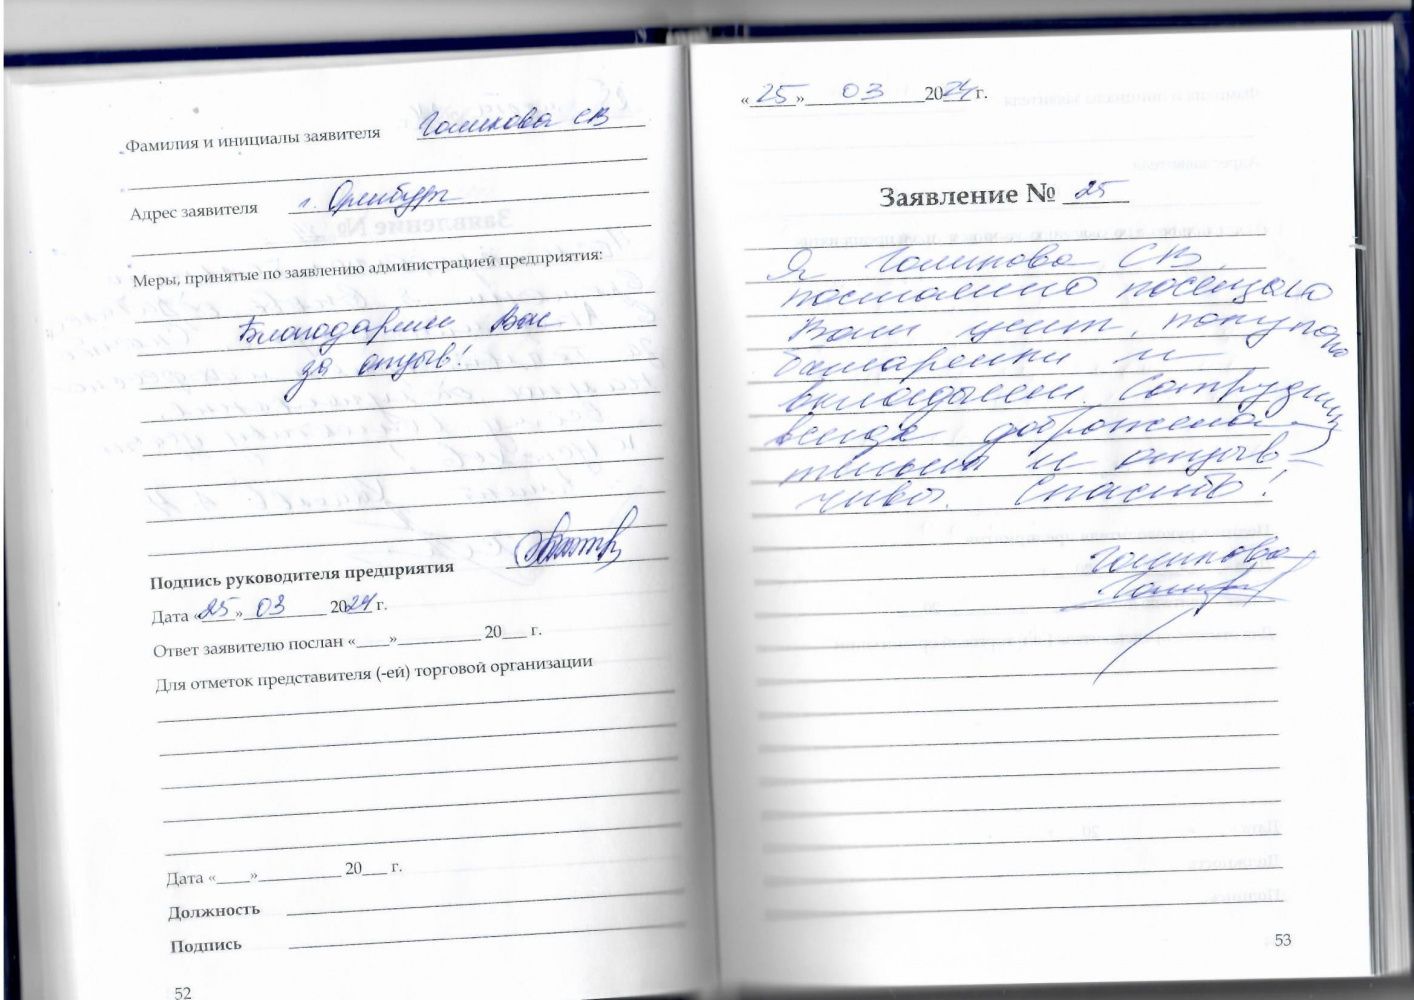 Фамилия и инициалы заявителя Голикова СВ
Адрес заявителя г. Оренбург
Меры, принятые по заявлению администрацией предприятия:
Благодарим Вас
за отзыв!
Подпись руководителя предприятия
Дата «25» 03 2024 г.
Ответ заявителю послан «___»__________ 20___ г.
Для отметок представителя (-ей) торговой организации
Дата «____»__________ 20___ г.
Должность
Подпись
52
«25» 03 2024 г.
Заявление № 25
Я Голикова СВ,
постоянно посещаю
Ваш центр, покупаю
батарейки и
вкладыши. Сотрудники
всегда доброжела-
тельны и отзыв-
чивы. Спасибо!
Голикова
53